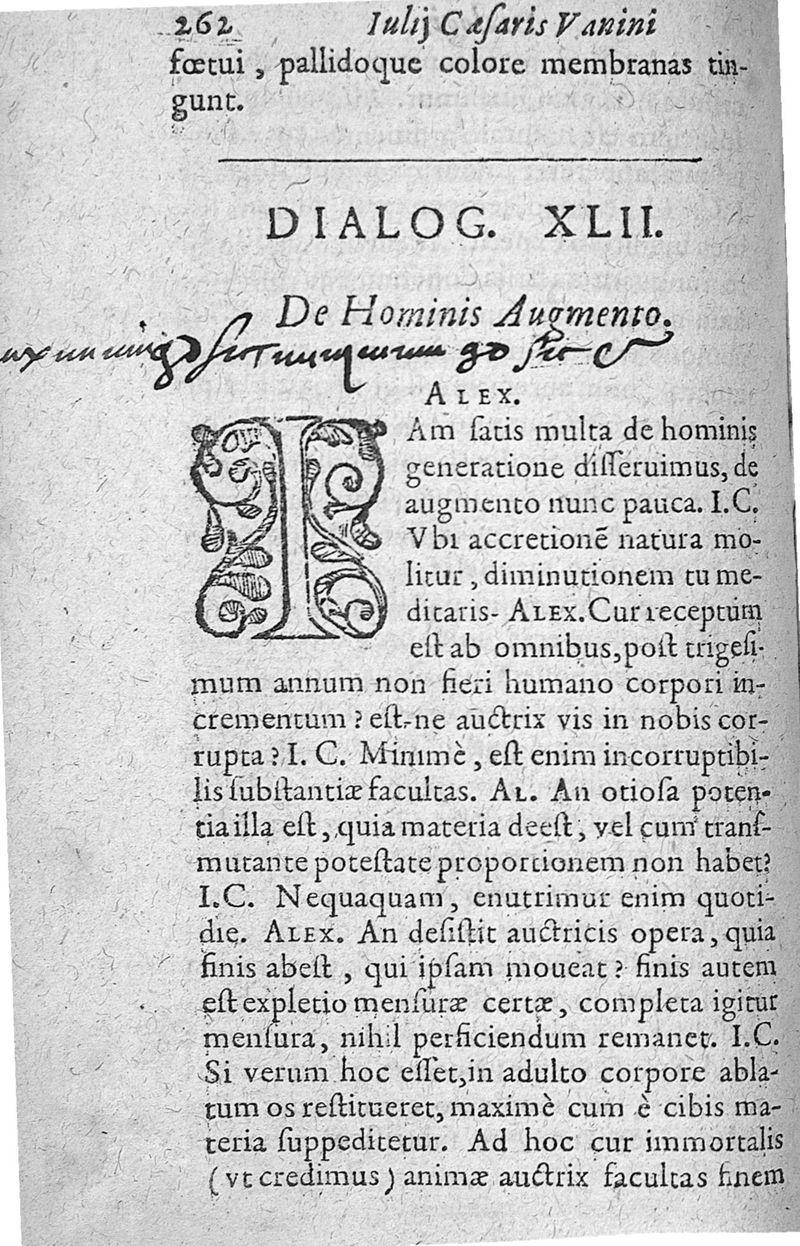 262 Iulij Cæſaris Vanini
fœtui, pallidoque colore membranas tin-
gunt.
DIALOG. XLII.
De Hominis Augmento.
ALEX.
IAm ſatis multa de hominis
generatione diſſeruimus, de
augmento nunc pauca. I.C.
Vbi accretionē natura mo-
litur, diminutionem tu me-
ditaris- ALEX. Cur receptum
eſt ab omnibus, poſt trigeſi-
mum annum non fieri humano corpori in-
crementum? eſt-ne auctrix vis in nobis cor-
rupta? I. C. Minimè, eſt enim incorruptibi-
lis ſubſtantiæ facultas. AL. An otioſa poten-
tia illa eſt, quia materia deeſt, vel cum tranſ-
mutante poteſtate proportionem non habet?
I.C. Nequaquam, enutrimur enim quoti-
die. ALEX. An deſiſtit auctricis opera, quia
finis abeſt, qui ipſam moueat? finis autem
eſt expletio menſuræ certæ, completa igitur
menſura, nihil perficiendum remanet. I.C.
Si verum hoc eſſet, in adulto corpore abla-
tum os reſtitueret, maximè cum è cibis ma-
teria ſuppeditetur. Ad hoc cur immortalis
(vt credimus) animæ auctrix facultas finem